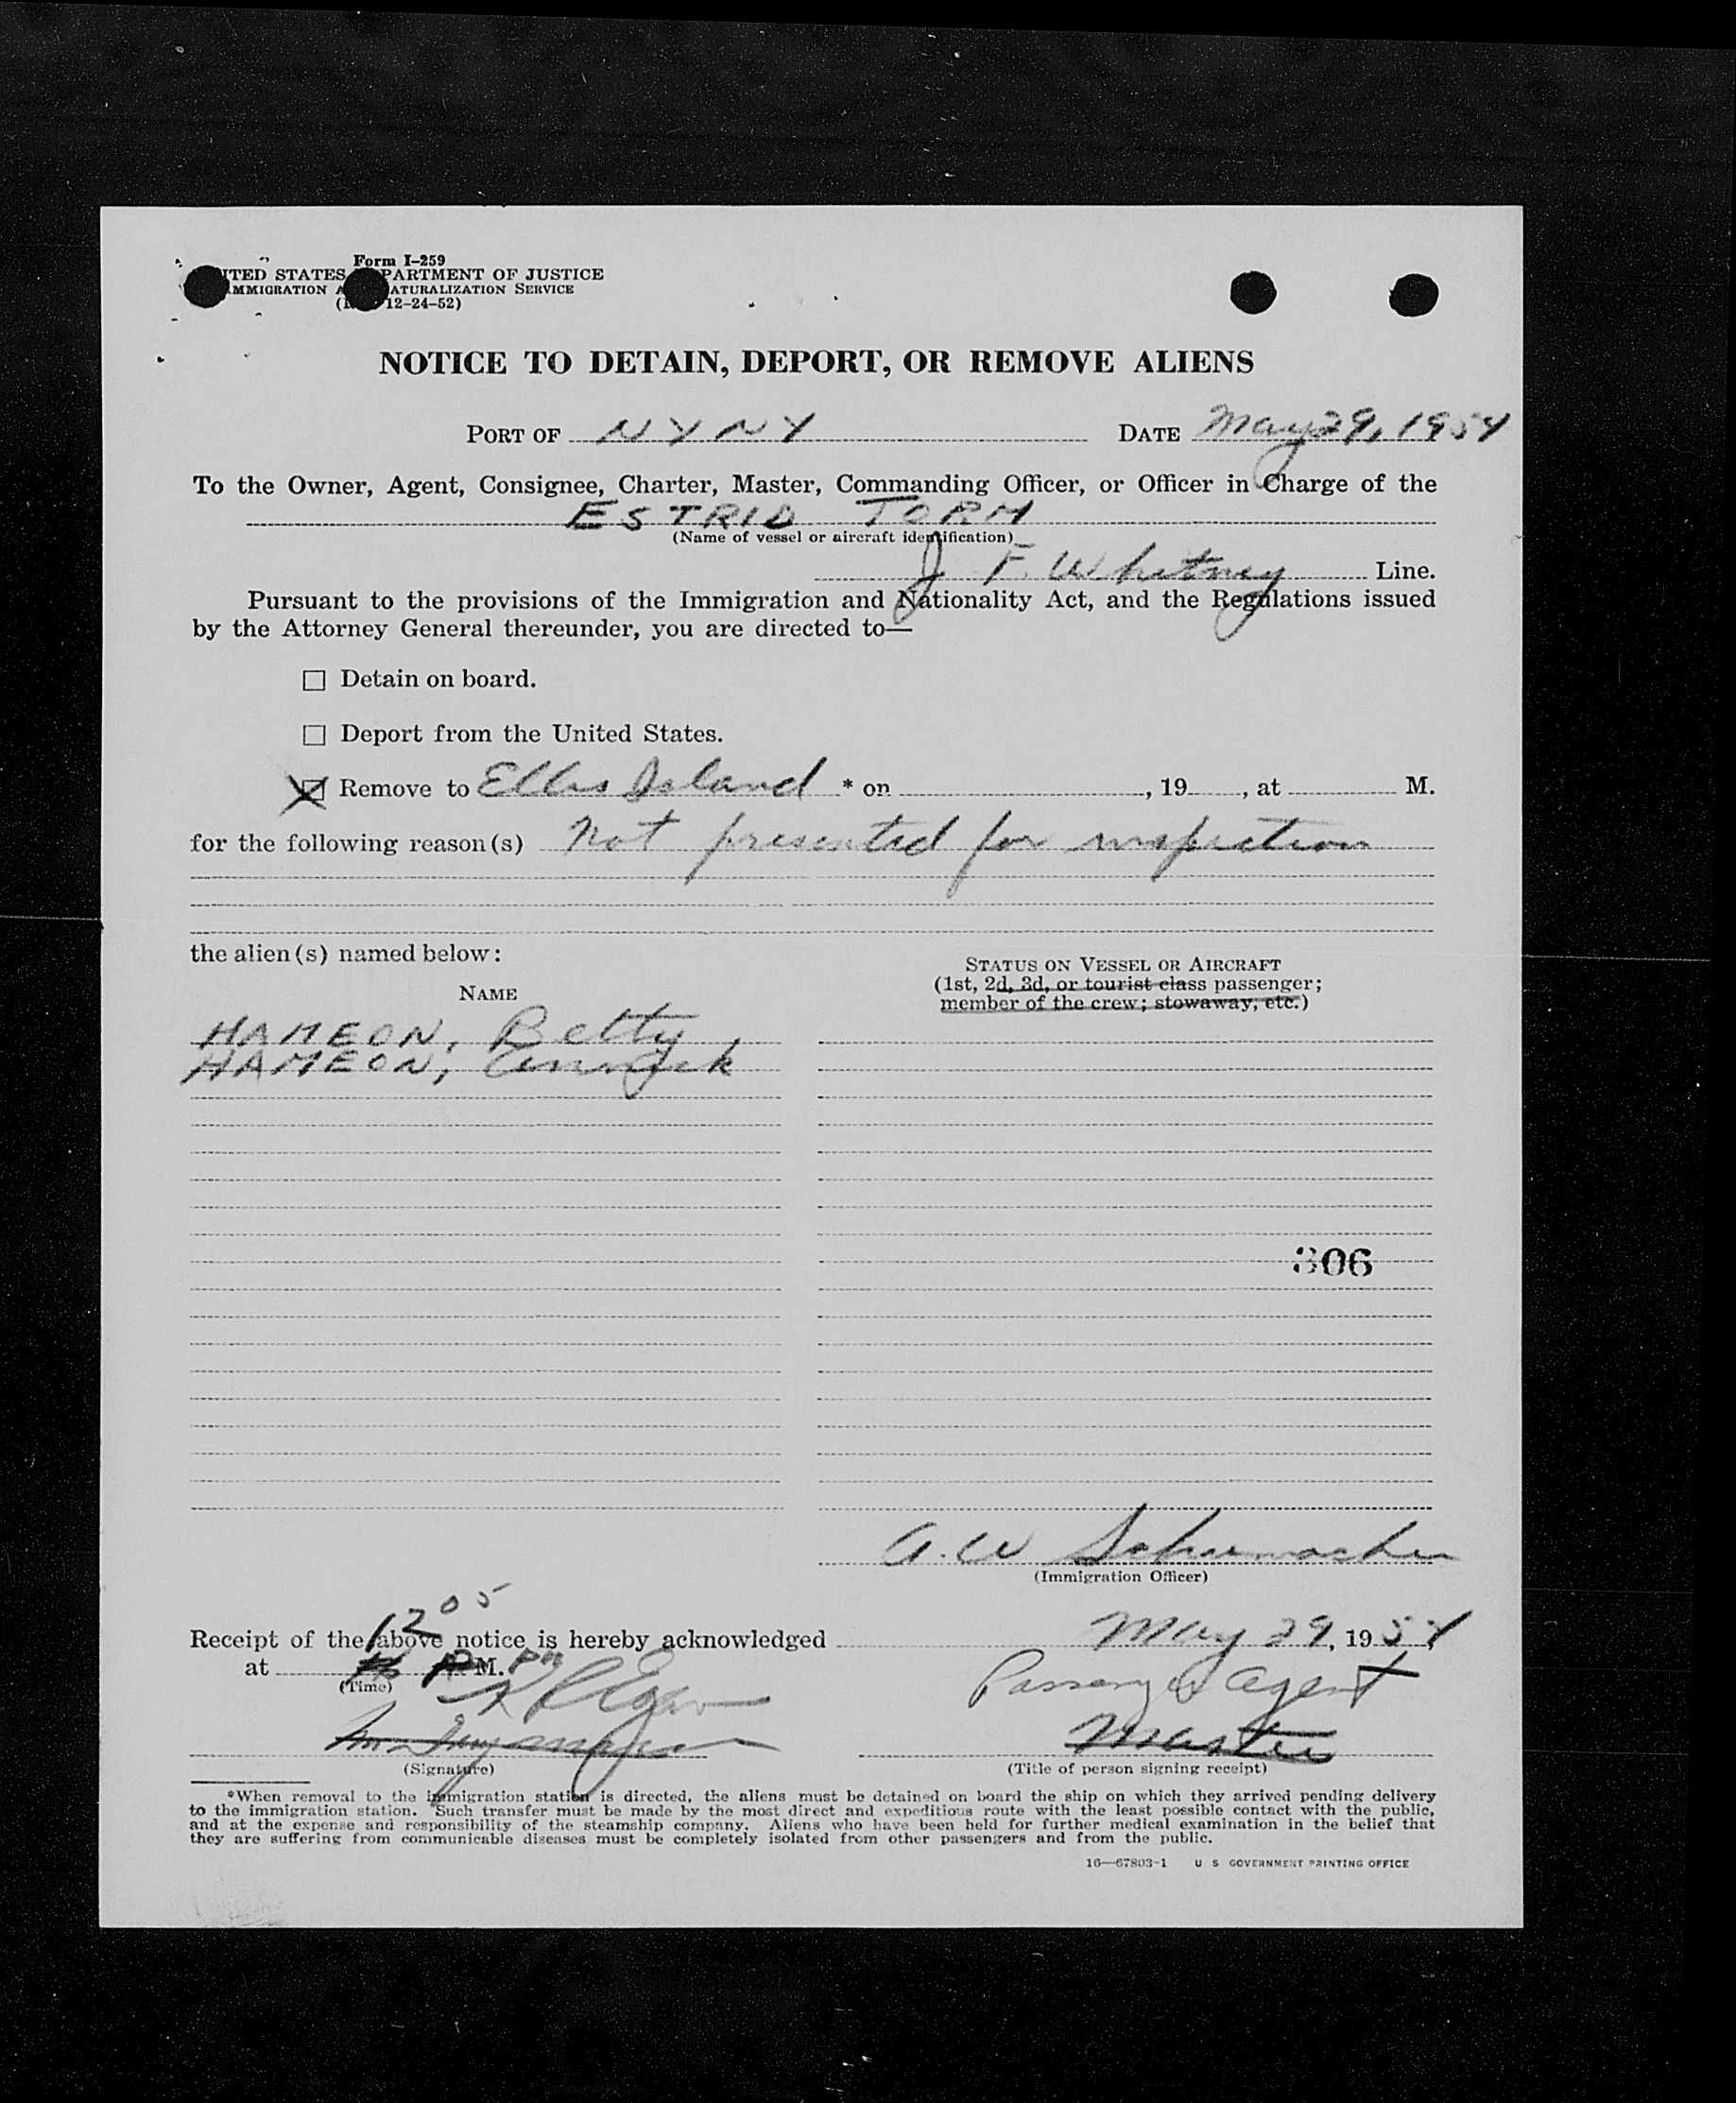 Form I-259
ITED STATES PARTMENT OF JUSTICE
MMIGRATION A ATURALIZATION SERVICE
( 12-24-52)
NOTICE TO DETAIN, DEPORT, OR REMOVE ALIENS
PORT OF NYNY DATE May 29, 1954
To the Owner, Agent, Consignee, Charter, Master, Commanding Officer, or Officer in Charge of the
ESTRID TORM
(Name of vessel or aircraft identification)
J F. Whitney Line.
Pursuant to the provisions of the Immigration and Nationality Act, and the Regulations issued
by the Attorney General thereunder, you are directed to—
Detain on board.
Deport from the United States.
Remove to Ellis Island * on , 19 , at M.
for the following reason(s) Not presented for inspection
the alien(s) named below:
STATUS ON VESSEL OR AIRCRAFT
(1st, 2d, 3d, or tourist class passenger;
member of the crew; stowaway, etc.)
NAME
HAMEON, Betty
HAMEON,
306
A. W Schumacher
(Immigration Officer)
1205
Receipt of the above notice is hereby acknowledged May 29, 1954
at M. PM
(Time)
Passenger agent
Master
(Signature)
(Title of person signing receipt)
*When removal to the immigration station is directed, the aliens must be detained on board the ship on which they arrived pending delivery
to the immigration station. Such transfer must be made by the most direct and expeditious route with the least possible contact with the public,
and at the expense and responsibility of the steamship company. Aliens who have been held for further medical examination in the belief that
they are suffering from communicable diseases must be completely isolated from other passengers and from the public.
16—67803-1 U S GOVERNMENT PRINTING OFFICE